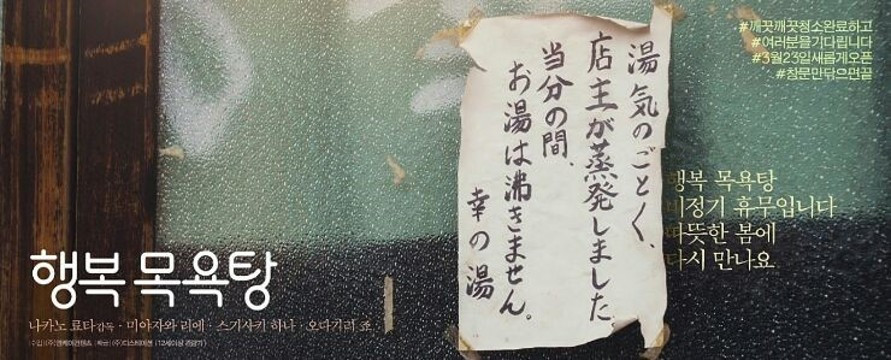 #깨끗깨끗청소완료하고
#여러분을기다립니다
#3월23일새롭게오픈
#창문만닦으면끝
湯気のごとく、
店主が蒸発しました。
当分の間、
お湯は沸きません。
幸の湯
행복 목욕탕
비정기 휴무입니다
따뜻한 봄에
다시 만나요
행복 목욕탕
나카노 료타 감독 · 미야자와 리에 · 스기사키 하나 · 오다기리 죠